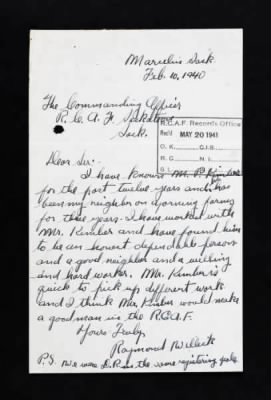 Marcelin Sask
Feb. 10, 1940
The Commanding Officer
R.C.A.F. Saskatoon
Sask.
R.C.A.F. Records Office
Rec'd MAY 20 1941
O.K. C.I.B.
R.G. N.L.
Dear Sir:-
I have known Mr. P. Kimber
for the past twelve years and has
been my neighbor on a joining farms
for three years. I have worked with
Mr. Kimber and have found him
to be an honest dependable person
and a good neighbor and a willing
and hard worker. Mr. Kimber is
quick to pick up different work
and I think Mr. Kimber would make
a good man in the R.C.A.F.
Yours Truly
Raymond
P.S. We were in the same registering